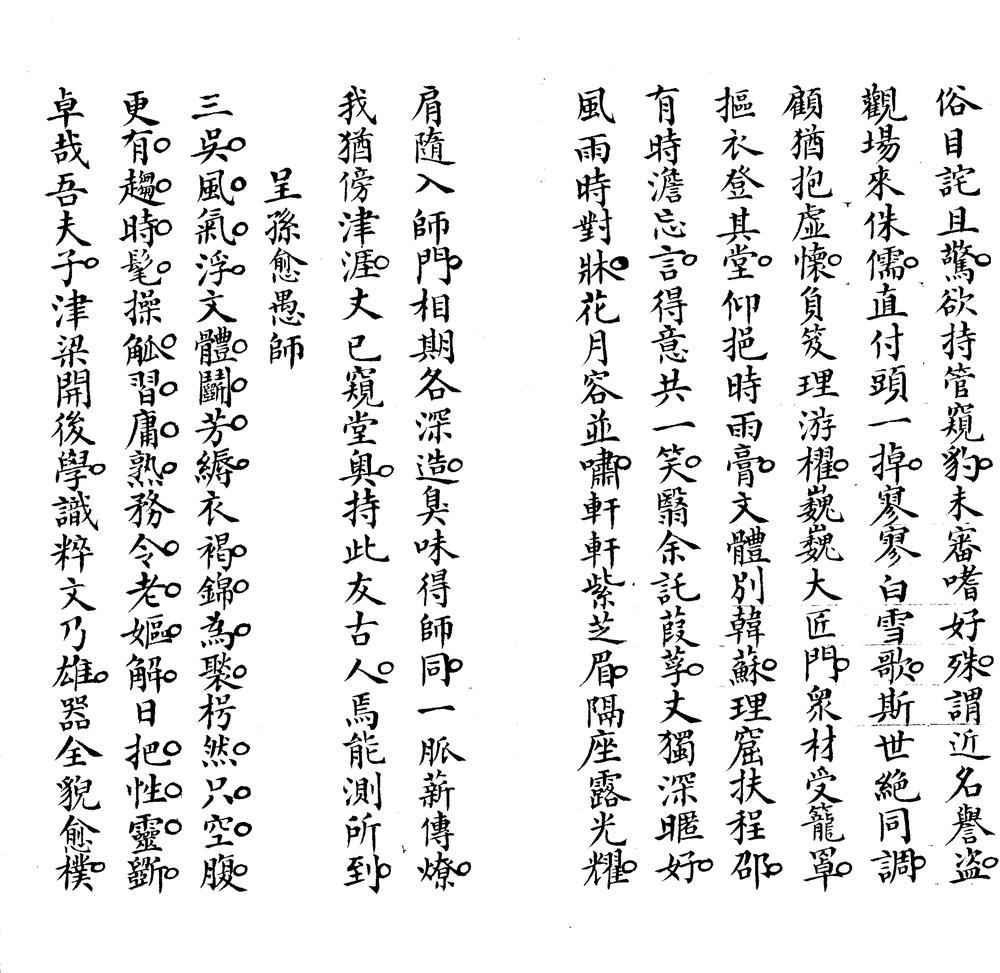 俗目詫且驚欲持管窺豹未審嗜好殊謂近名譽盜
觀場來侏儒直付頭一掉寥寥白雪歌斯世絕同調
顧猶抱虛懷負笈理游櫂巍巍大匠門衆材受籠罩
摳衣登其堂仰挹時雨膏文體別韓蘇理窟扶程邵
有時澹忘言得意共一笑翳余託葭莩丈獨深暱好
風雨時對牀花月容並嘯軒軒紫芝眉隔座露光耀
肩隨入師門相期各深造臭味得師同一脈薪傳燎
我猶傍津涯丈已窺堂奧持此友古人焉能測所到
呈孫愈愚師
三吳風氣浮文體鬭芳縟衣褐錦為褧枵然只空腹
更有趨時髦操觚習庸熟務令老嫗解日把性靈斵
卓哉吾夫子津梁開後學識粹文乃雄器全貌愈樸